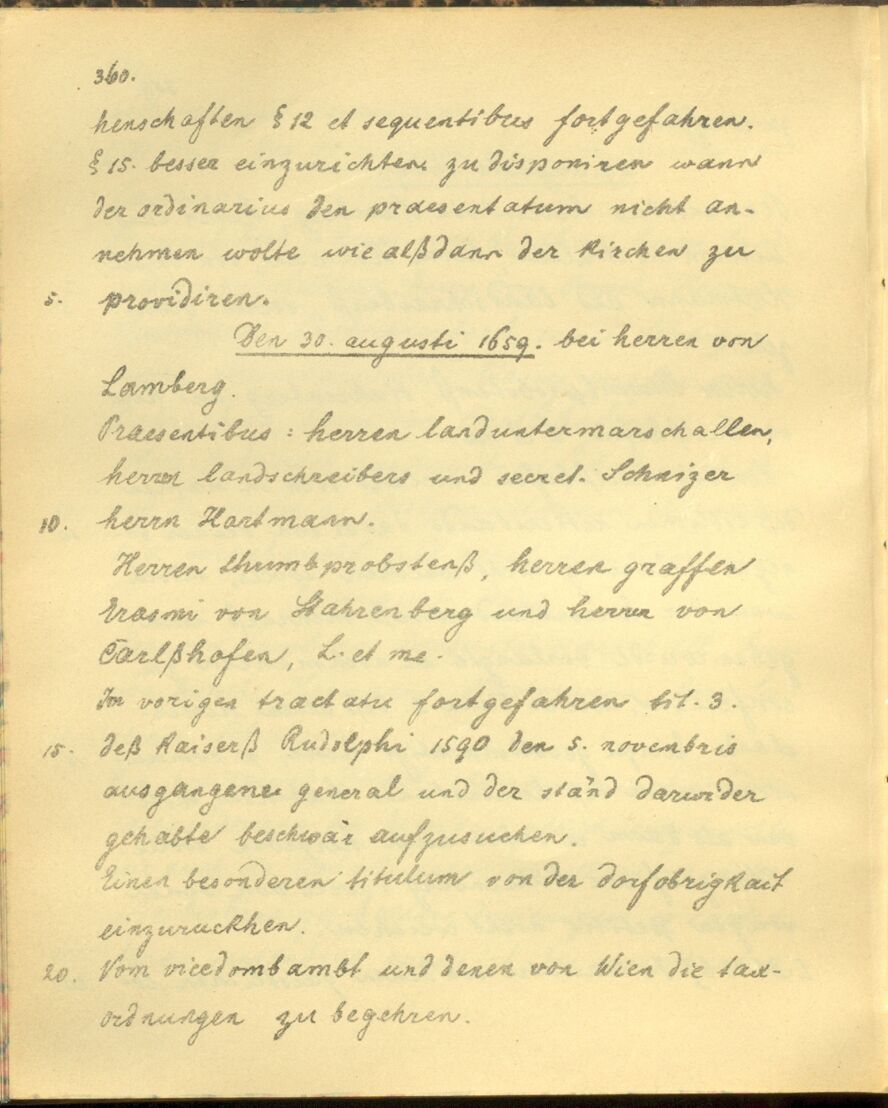 360.
henschaften § 12 et sequentibus fortgefahren.
§ 15. besser einzurichten zu disponiren wann
der ordinarius den praesentatum nicht an-
nehmen wolte wie alßdann der Kirchen zu
5. providiren.
Den 30. augusti 1659. bei herren von
Lamberg.
Praesentibus: herren landuntermarschallen,
herrn landschreibers und secret. Schnizer
10. herrn Hartmann.
Herren thumbprobstenß, herren graffen
Erasmi von Stahrenberg und herrn von
Carlßhofen, L. et me.
Im vorigen tractatu fortgefahren tit. 3.
15. deß Kaiserß Rudolphi 1590 den 5. novembris
ausgangene general und der ständ darwider
gehabte beschwär aufzusuchen.
Einen besonderen titulum von der dorfobrigkait
einzuruckhen.
20. Vom vicedombambt und denen von Wien die tax-
ordnungen zu begehren.